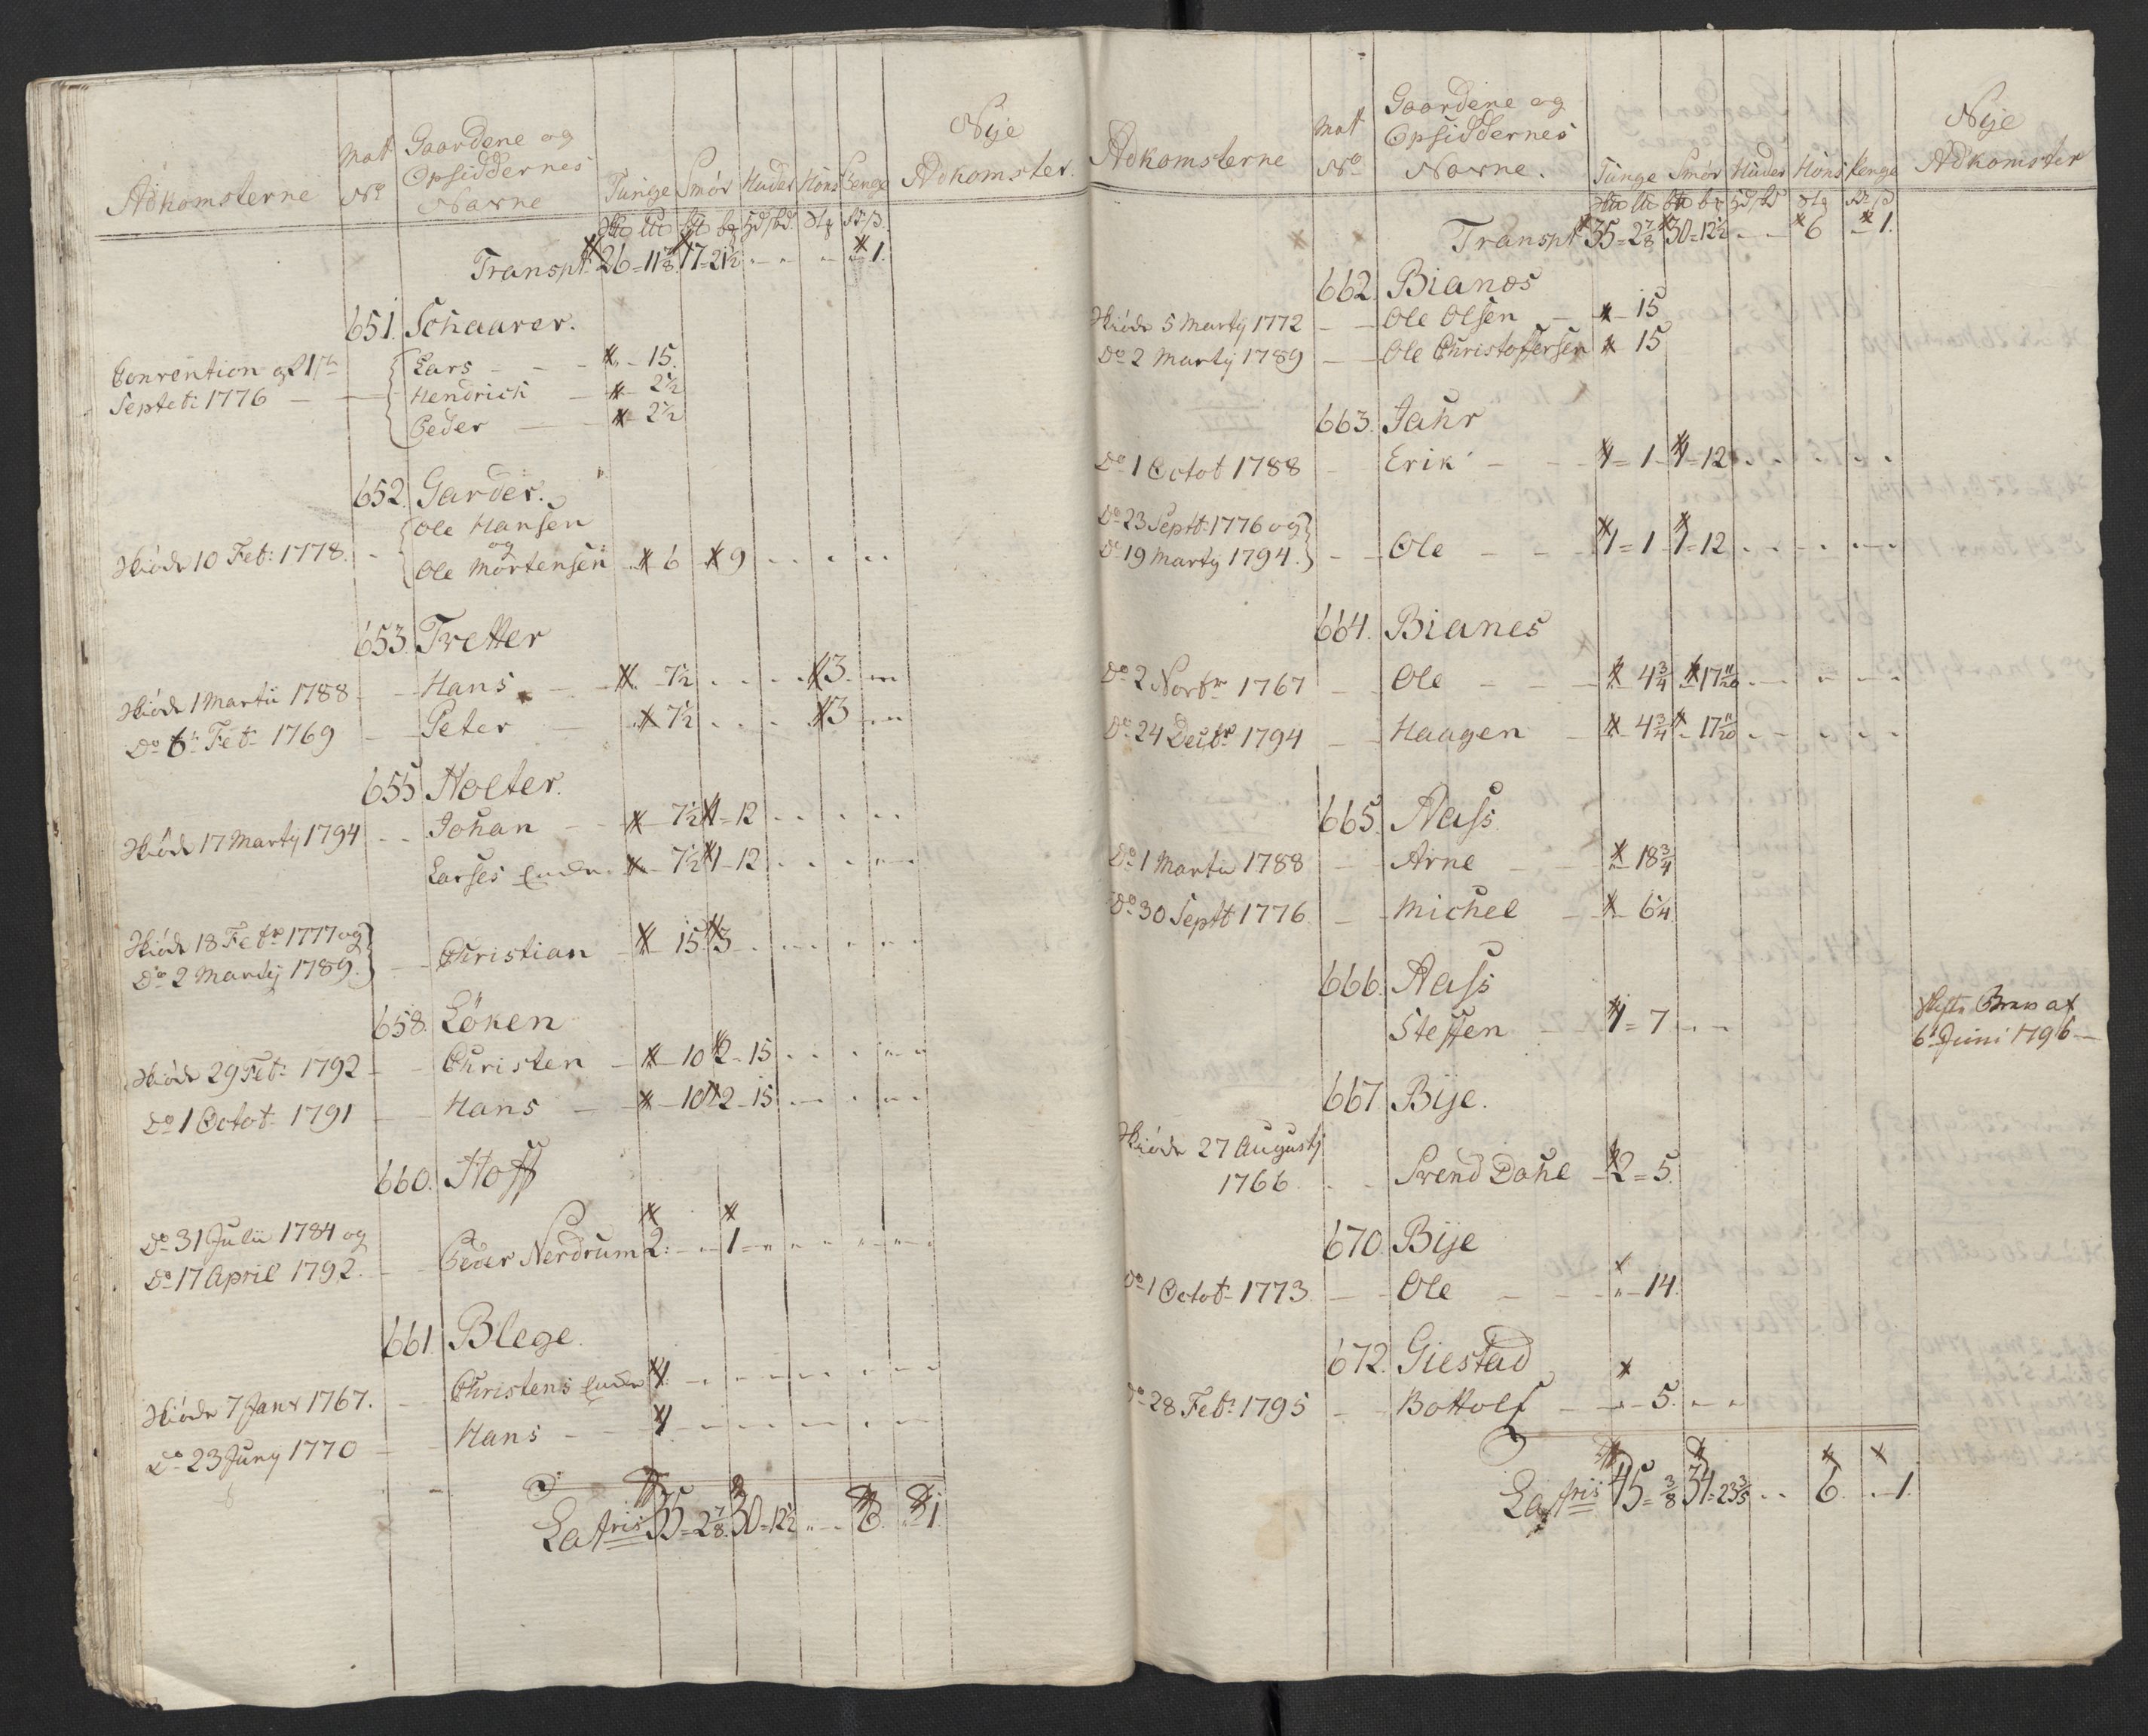 Adkomsterne Matt No Gaardene og Opsiddernes Navne Tunge Smör Huder Höns Penge Nÿe Adkomster.
Transpt. 26=11 7/8 17=21 1/2 1.
651. Schaarer.
Convention af 21de Lars 15.
Septeb: 1776 Hendrich 2 1/2
Peder 2 1/2
652. Garder.
Ole Hansen
og
Skiöde 10 Feb: 1778. Ole Mortensen 6 9
653. Tretter
Skiöde 1 Martii 1788 Hans 7 1/2 3
Do 6te Feb: 1769 Peter 7 1/2 3
655 Holter.
Skiöde 17 Martÿ 1794 Johan 7 1/2 1=12
Larses Enke 7 1/2 1-12
Skiöde 18 Febr 1777 og
Do 2 Martÿ 1789. Christian 15 3
658. Löken
Skiöde 29 Feb: 1792 Christen 10 2-15
Do 1 Octob: 1791 Hans 10 2-15
660. Hoff
Do 31 Julii 1784 og
Do 17 April 1792. Peder Nerdrum 2: 1
661 Blege.
Skiöde 7 Jan: 1767. Christens Enke 1
Do 23 Junÿ 1770 Hans 1
Latris 35=2 7/8 30=12 1/2 6. 1.
Adkomsterne Matt No Gaardene og Opsiddernes Navne. Tunge Smör Huder Höns Penge Nÿe Adkomster
Transpt 35=2 7/8 30=12 1/2 6 1.
662. Bianes
Skiöde 5 Martÿ 1772 Ole Olsen 15
Do 2 Martÿ 1789 Ole Christofersen 15
663. Jahr
Do 1 Octob 1788 Erik 1=1 1=12
Do 23 Septb: 1776 og
Do 19 Martÿ 1794. Ole 1=1 1=12
664. Bianes
Do 2 Novbr 1767 Ole 4 3/4 17 11/20
Do 24 Decbr 1794 Haagen 4 3/4 17 11/20
665. Aass
Do 1 Martii 1788 Arne 18 3/4
Do 30 Septb 1776 Michel 6 1/4
666. Aass
Steffen 1=7 Skifte Brev af
6 Juni 1796
667 Bÿe.
Skiöde 27 Augustÿ
1766 Svend Dahl 2=5.
670. Bÿe
Do 1 Octob: 1773 Ole 14.
672. Giestad
Do 28 Feb: 1795 Bottolf 5.
Latris 45= 3/8 34=23 3/5 6. 1.